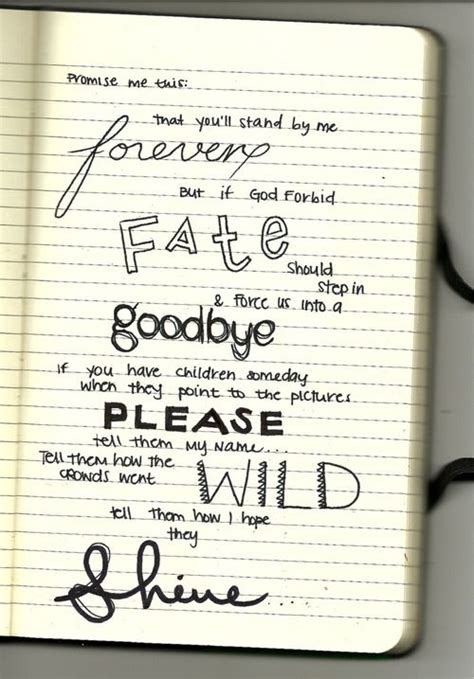 Promise me this:
that you'll stand by me
forever
But if God Forbid
Fate
should
step in
& force us into a
goodbye
if you have children someday
when they point to the pictures
PLEASE
tell them my name...
Tell them how the
crowds went
WILD
tell them how I hope
they
Shine.....